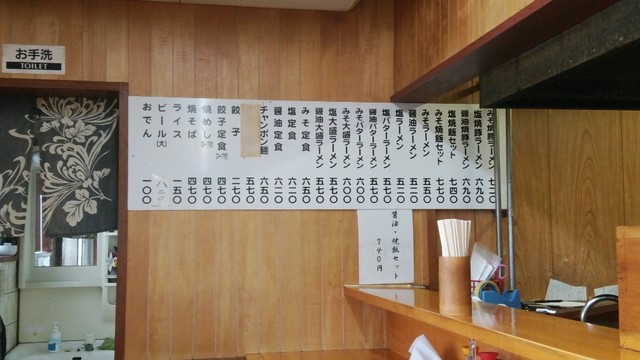 お手洗
TOILET
みそ焼豚ラーメン 七二〇
塩焼豚ラーメン 六九〇
醤油焼豚ラーメン 六九〇
塩焼飯セット 七四〇
みそ焼飯セット 七七〇
みそラーメン 五五〇
醤油ラーメン 五二〇
塩ラーメン 五二〇
塩バターラーメン 五七〇
醤油バターラーメン 五七〇
みそバターラーメン 六〇〇
みそ大盛ラーメン 六〇〇
塩大盛ラーメン 五七〇
醤油大盛ラーメン 五七〇
みそ定食 六五〇
塩定食 六二〇
醤油定食 六二〇
チャンポン麺 六五〇
五七〇
餃子 二七〇
餃子定食 四七〇
焼めし 四七〇
焼そば 四七〇
ライス 一五〇
ビール(大)
おでん 一〇〇
醤油・焼飯セット
740円